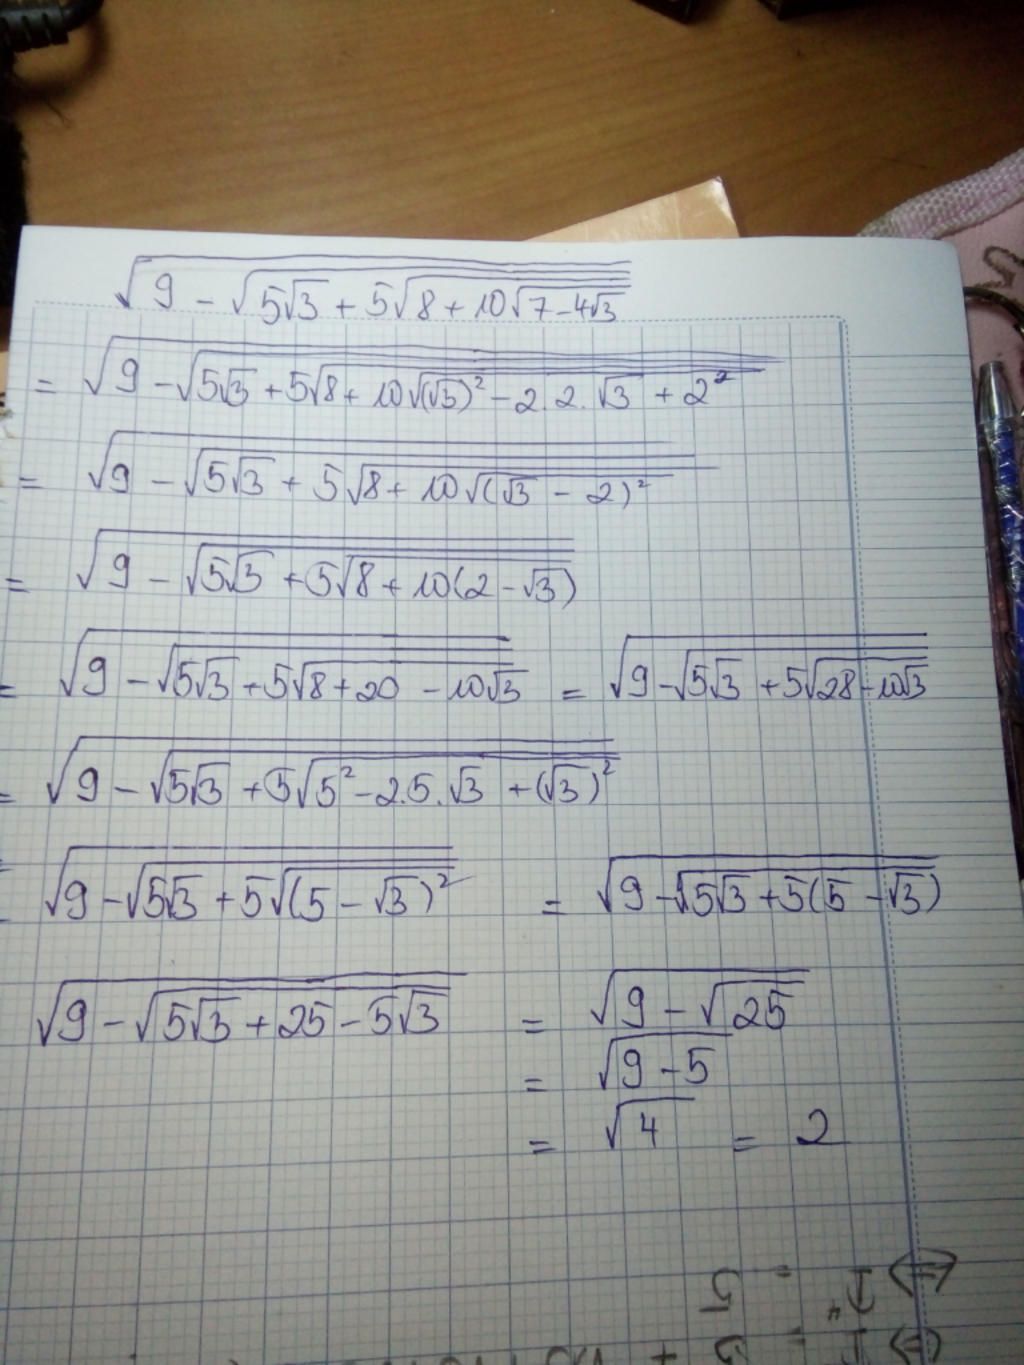 √(9 - √(5√3 + 5√(8 + 10√(7 - 4√3))))
= √(9 - √(5√3 + 5√(8 + 10√((√3)² - 2.2.√3 + 2²))))
= √(9 - √(5√3 + 5√(8 + 10√((√3 - 2)²))))
= √(9 - √(5√3 + 5√(8 + 10(2 - √3))))
= √(9 - √(5√3 + 5√(8 + 20 - 10√3))) = √(9 - √(5√3 + 5√(28 - 10√3)))
= √(9 - √(5√3 + 5√(5² - 2.5.√3 + (√3)²)))
= √(9 - √(5√3 + 5√((5 - √3)²))) = √(9 - √(5√3 + 5(5 - √3)))
√(9 - √(5√3 + 25 - 5√3)) = √(9 - √25)
= √(9 - 5)
= √4 = 2